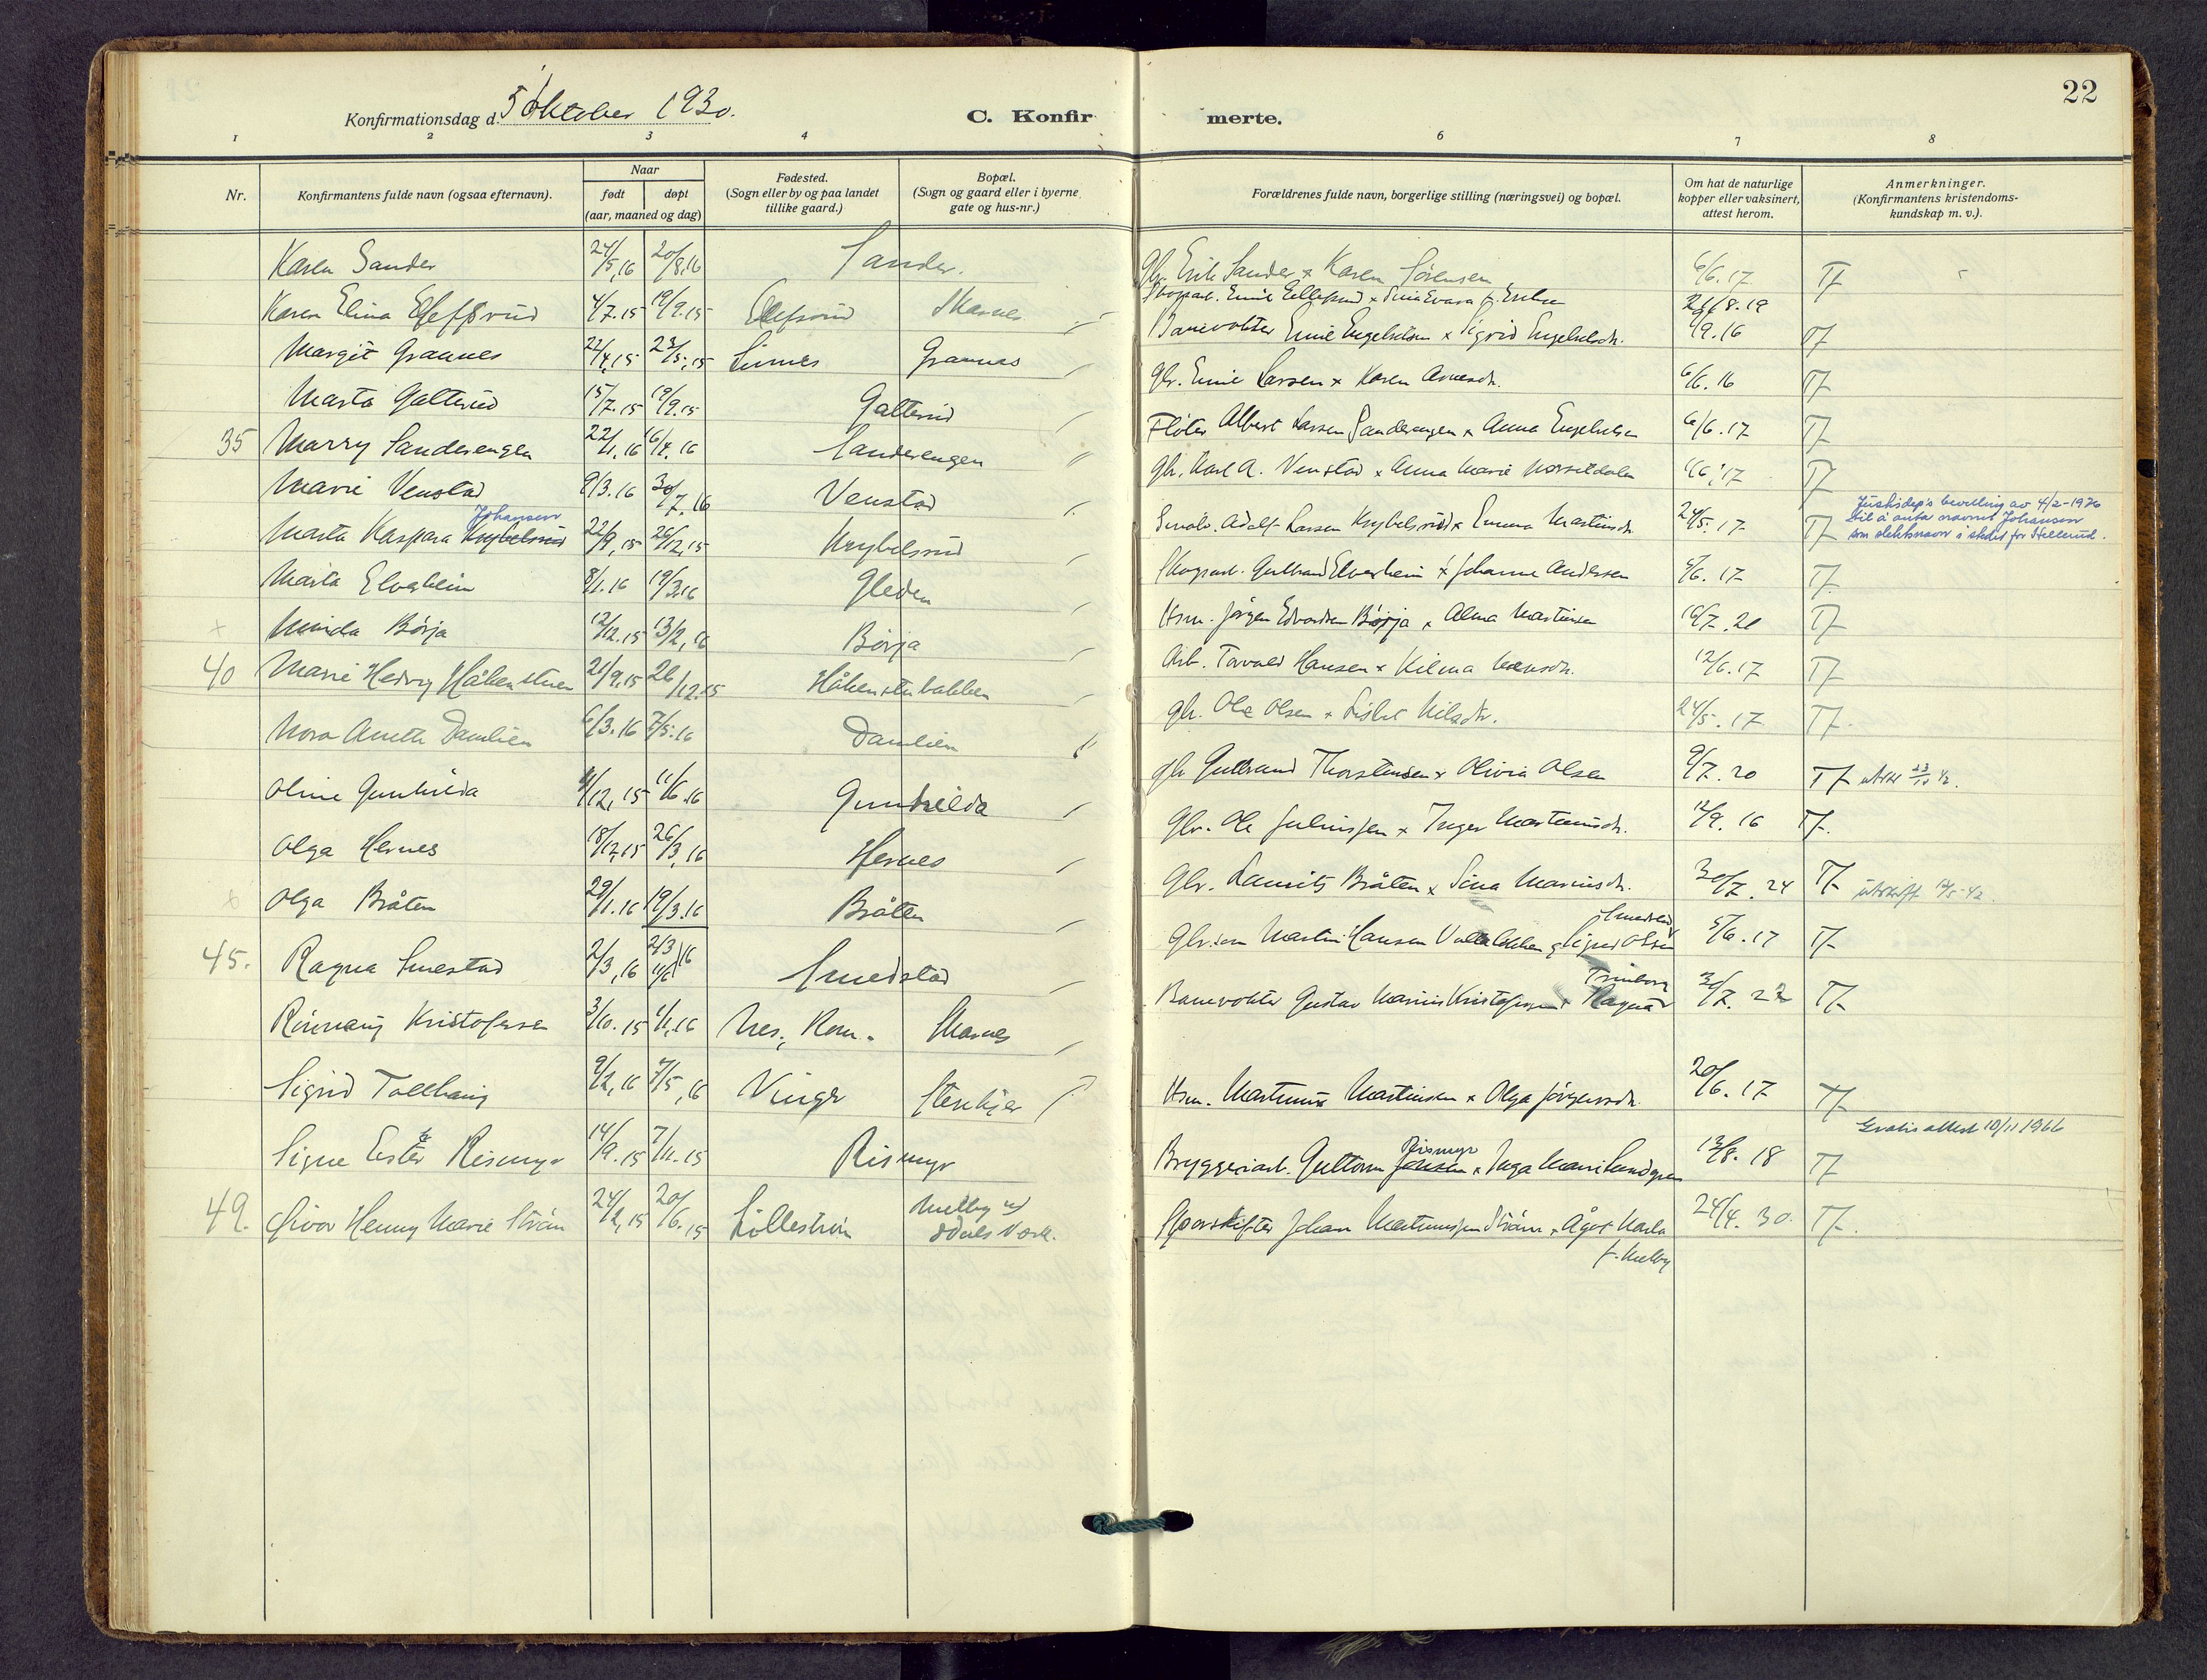 22
Konfirmationsdag d. 5 oktober 1930.
C. Konfirmerte.
1 2 3 4 6 7 8
Nr.
Konfirmantens fulde navn (ogsaa efternavn).
Naar
født døpt
(aar, maaned og dag)
Fødested.
(Sogn eller by og paa landet
tillike gaard.)
Bopæl.
(Sogn og gaard eller i byerne
gate og hus-nr.)
Forældrenes fulde navn, borgerlige stilling (næringsvei) og bopæl.
Om hat de naturlige
kopper eller vaksinert,
attest herom.
Anmerkninger.
(Konfirmantens kristendoms-
kundskap m. v.).
Karen Sander 24/5,16 20/8,16 Sander. Gbr. Erik Sander x Karen Sørensen 6/6.17 Tf
Karen Elina 4/7.15 19/9.15 Skarnes Skogsarb. Emil
Margit Grannes 22/4,15 23/5,15 Grannes Banevokter Emil Engebretsen x Sigrid Engebretsdr. 9.16 Tf
Marta Galterud 15/7.15 19/9.15 Galterud Gbr. Emil Larsen x Karen Arnesdr. 6/6.16 Tf
35 Marry Sanderengen 22/1.16 16/4.16 Sanderengen Fløter Albert Larsen Sanderengen x Anna Engebretsen 6/6.17 Tf
Marie Venstad 9/3.16 30/7.16 Venstad Gbr. Karl A. Venstad x Anna Marie 6/6.17 Tf
Johansen
Marta Kaspara Krybelsrud 22/9,15 26/12,15 Krybelsrud Småbr. Adolf Larsen Krybelsrud x Emma Martinsdr. 24/5.17 Tf
Justisdep's bevilling av 4/2-1976
til å anta navnet Johansen
som slektsnavn i stedet for Hellerud.
Marta Elvesheim 8/1.16 19/3.16 Gleden Skogsarb. Gulbrand Elvesheim x Johanne Andersen 5/6.17 Tf
x Minda Børja 12/12.15 13/2,16 Børja Hsm. Jørgen Edvardsen Børja x Alma Martinsen 19/7.20 Tf
40 Marie Hedvig Håkenstuen 21/9.15 26/12.15 Håkenstubakken Arb. Torvald Hansen x Kilma 12/6.17 Tf
Nora Anette Damlien 6/3.16 7/5.16 Damlien Gbr. Ole Olsen x Lisbet Nilsdr. 24/5.17 Tf
Oline Gunhilda 4/12,15 11/6.16 Gunhilda Gbr Gulbrand Thorstensen x Olivia Olsen 9/7.20 Tf
Olga Hernes 18/12,15 26/3,16 Hernes Gbr. Ole Juliussen x Inger Martinusdr. 12/9.16 Tf.
x Olga Bråten 29/1.16 19/3.16 Bråten Gbr. Laurits Bråten x Sina Mariusdr. 30/7.24 Tf utskrift 12/5-42.
45. Ragna Smestad 2/3,16 Smedstad Gbr.søn Martin Hansen 5/6.17 Tf
Rinnaug Kristofersen 3/10.15 1/1,16 Nes, Rom. Skarnes Banevokter Gustav Marius Kristofersen x Ragna Tf
Sigrid Tollhaug 9/2,16 7/5,16 Vinger Stenkjer Hsm. Martinius Martinsen x Olga Jørgensdr. 20/6.17 Tf
Gratis attest 10/11 1966
Signe Ester Rismyr 14/9.15 7/11.15 Rismyr Bryggeriarb. Guttorm Jensen Rismyr x Inga Marie Lundgren 13/8.18 Tf
49. Givor Henny Marie Strøm 24/2,15 20/6.15 Lillestrøm Melby Odals Verk. Sporskifter Johan Martinussen Strøm x Ågot Marta 24/4.30. Tf.
f. Melby